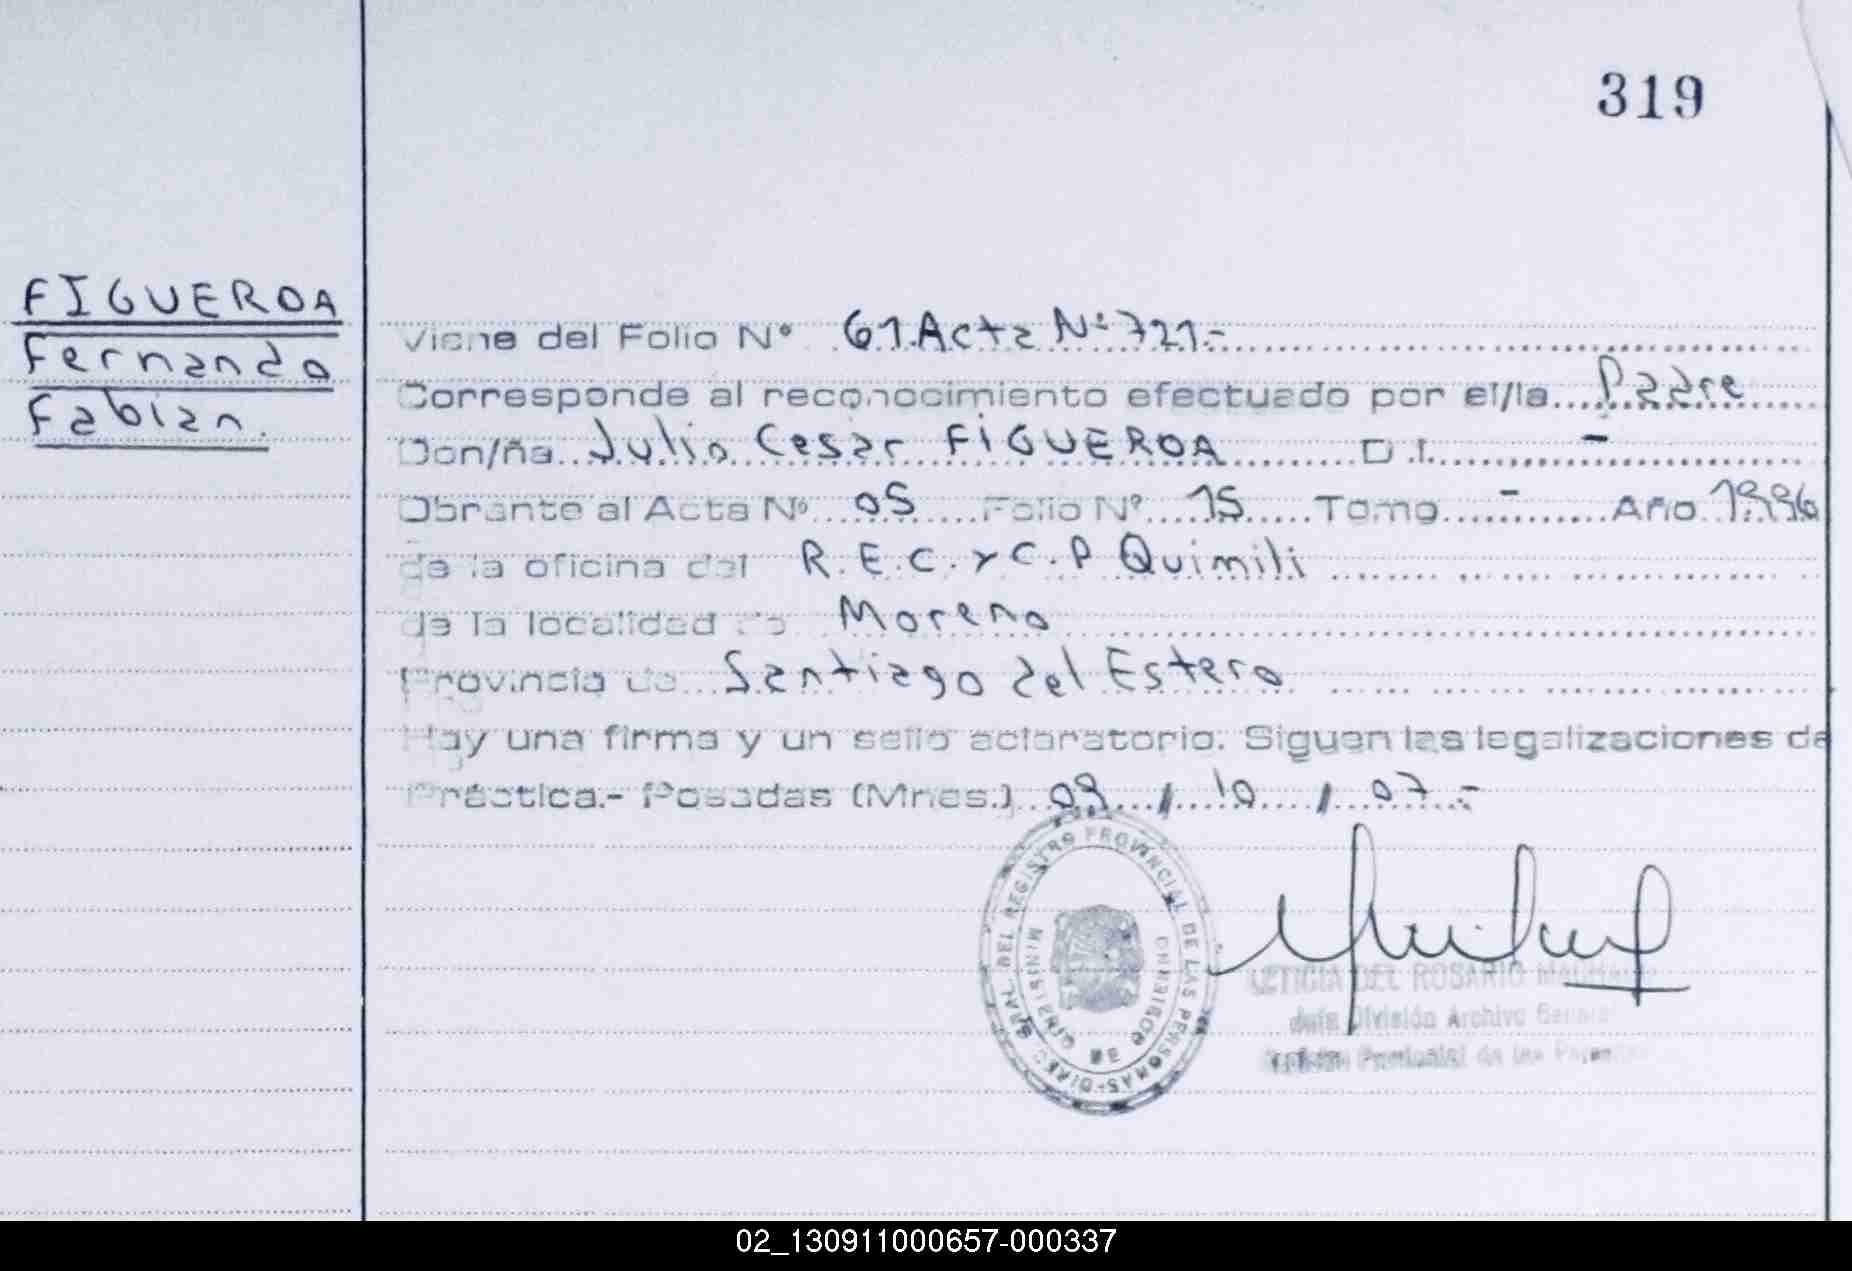 319
FIGUEROA
Fernando
Fabian.
Viene del Folio Nº 61 Acta Nº 721.-
Corresponde al reconocimiento efectuado por el/la Padre
Don/ña Julio Cesar FIGUEROA D.I. -
Obrante al Acta Nº 05 Folio Nº 15 Tomo - Año 1996
de la oficina del R.E.C. y C.P Quimili
de la localidad de Moreno
Provincia de Santiago del Estero
Hay una firma y un sello aclaratorio. Siguen las legalizaciones de
Práctica.- Posadas (Mnes.) 09 / 10 / 07.-
DIREC. GRAL. DEL REGISTRO PROVINCIAL DE LAS PERSONAS
MINISTERIO DE GOBIERNO
LETICIA DEL ROSARIO
Jefe División Archivo General
Provincial de las Personas
02_130911000657-000337